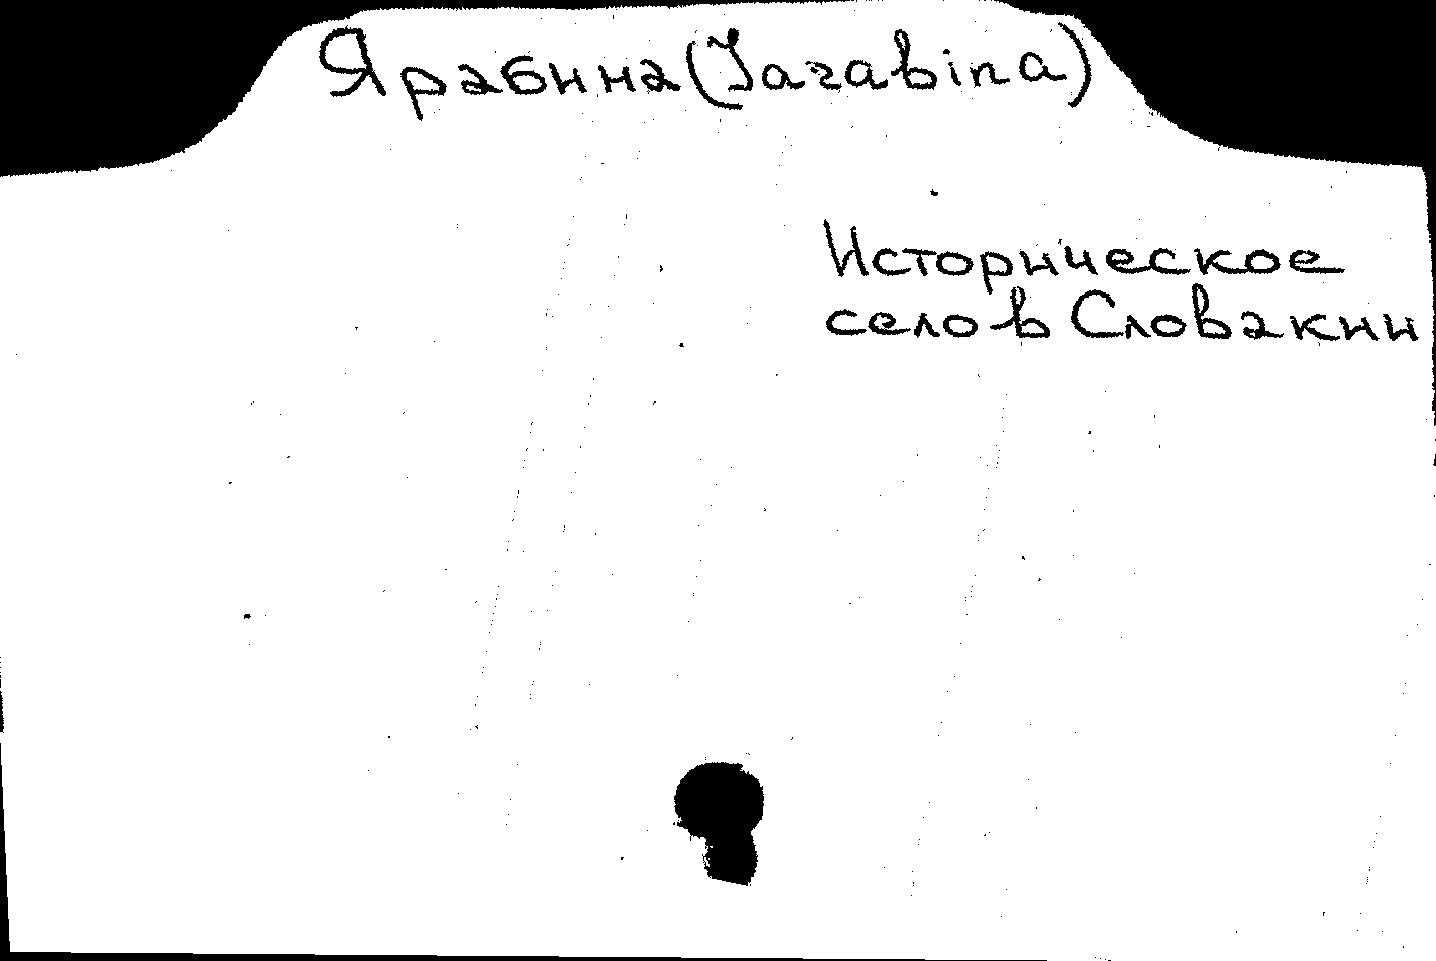 Ярабина (Jarabina)
Историческое
село в Словакии